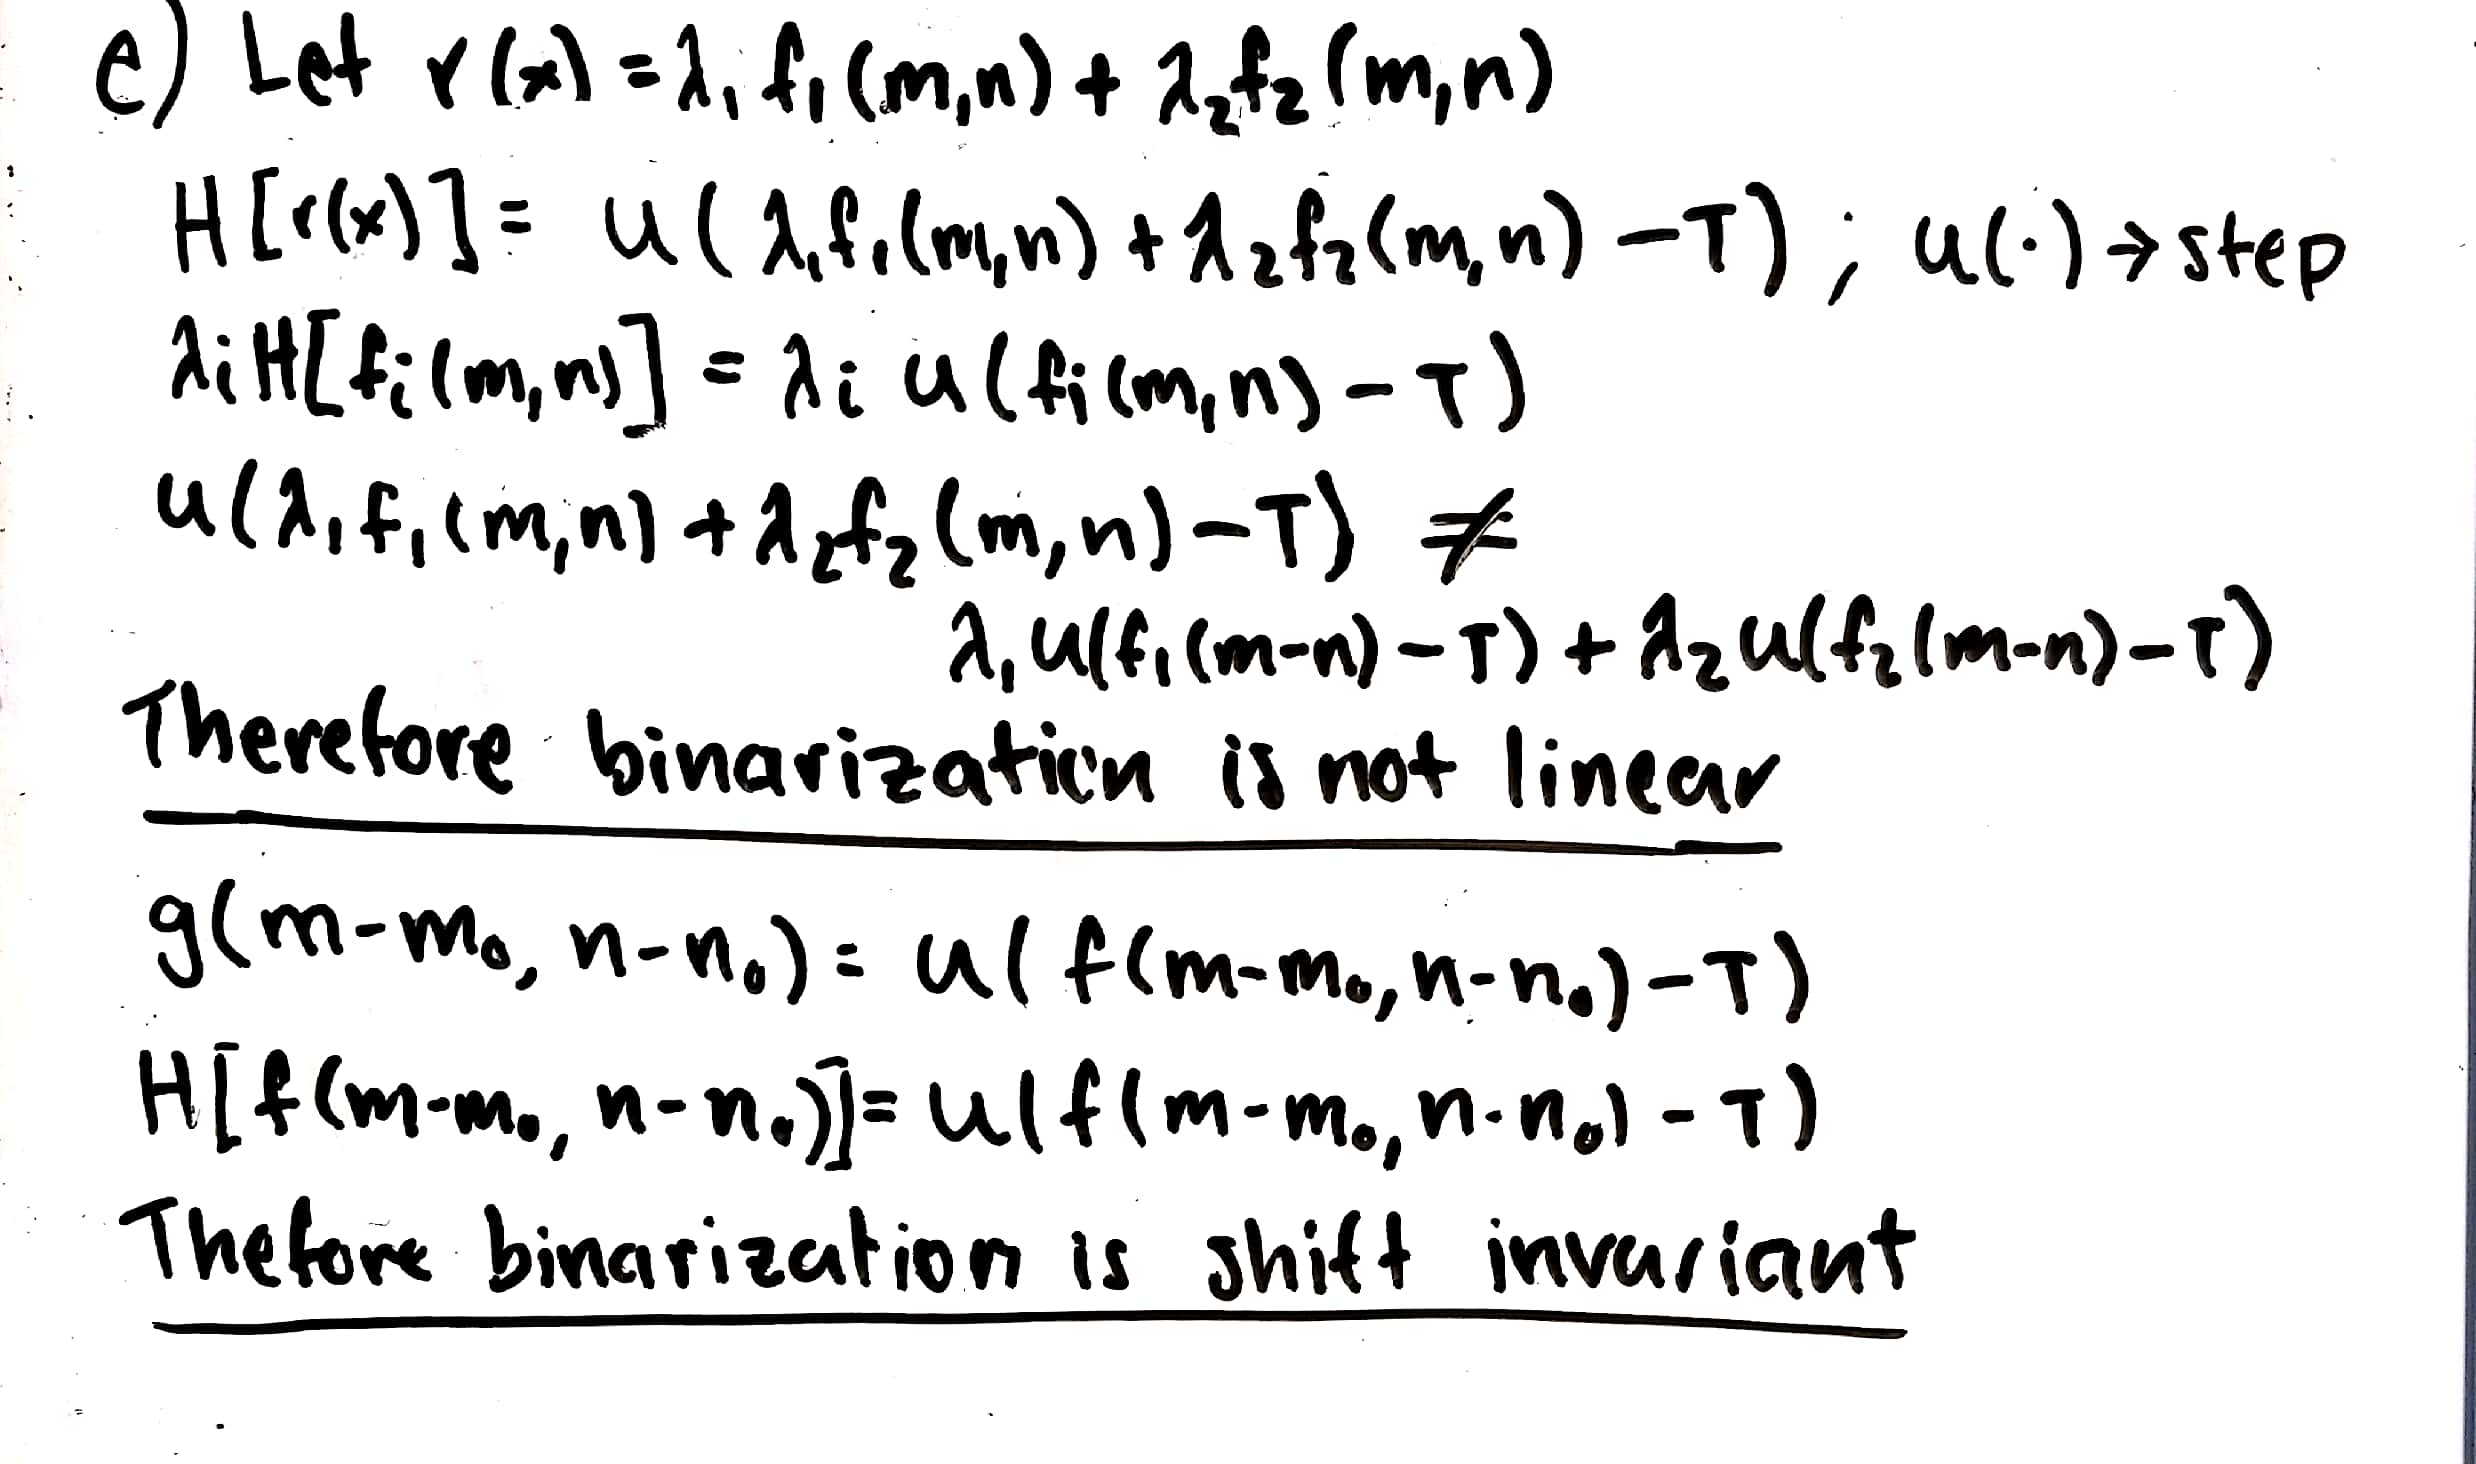 e) Let r(x) = λ₁f₁(m,n) + λ₂f₂(m,n)
H[r(x)] = u(λ₁f₁(m,n) + λ₂f₂(m,n) - T) ; u(·) → step
λᵢH[fᵢ(m,n)] = λᵢ u(fᵢ(m,n) - T)
u(λ₁f₁(m,n) + λ₂f₂(m,n) - T) ≠
λ₁u(f₁(m-n) - T) + λ₂u(f₂(m-n) - T)
Therefore binarization is not linear
g(m-m₀, n-n₀) = u(f(m-m₀, n-n₀) - T)
H[f(m-m₀, n-n₀)] = u(f(m-m₀, n-n₀) - T)
Thefore binarization is shift invariant